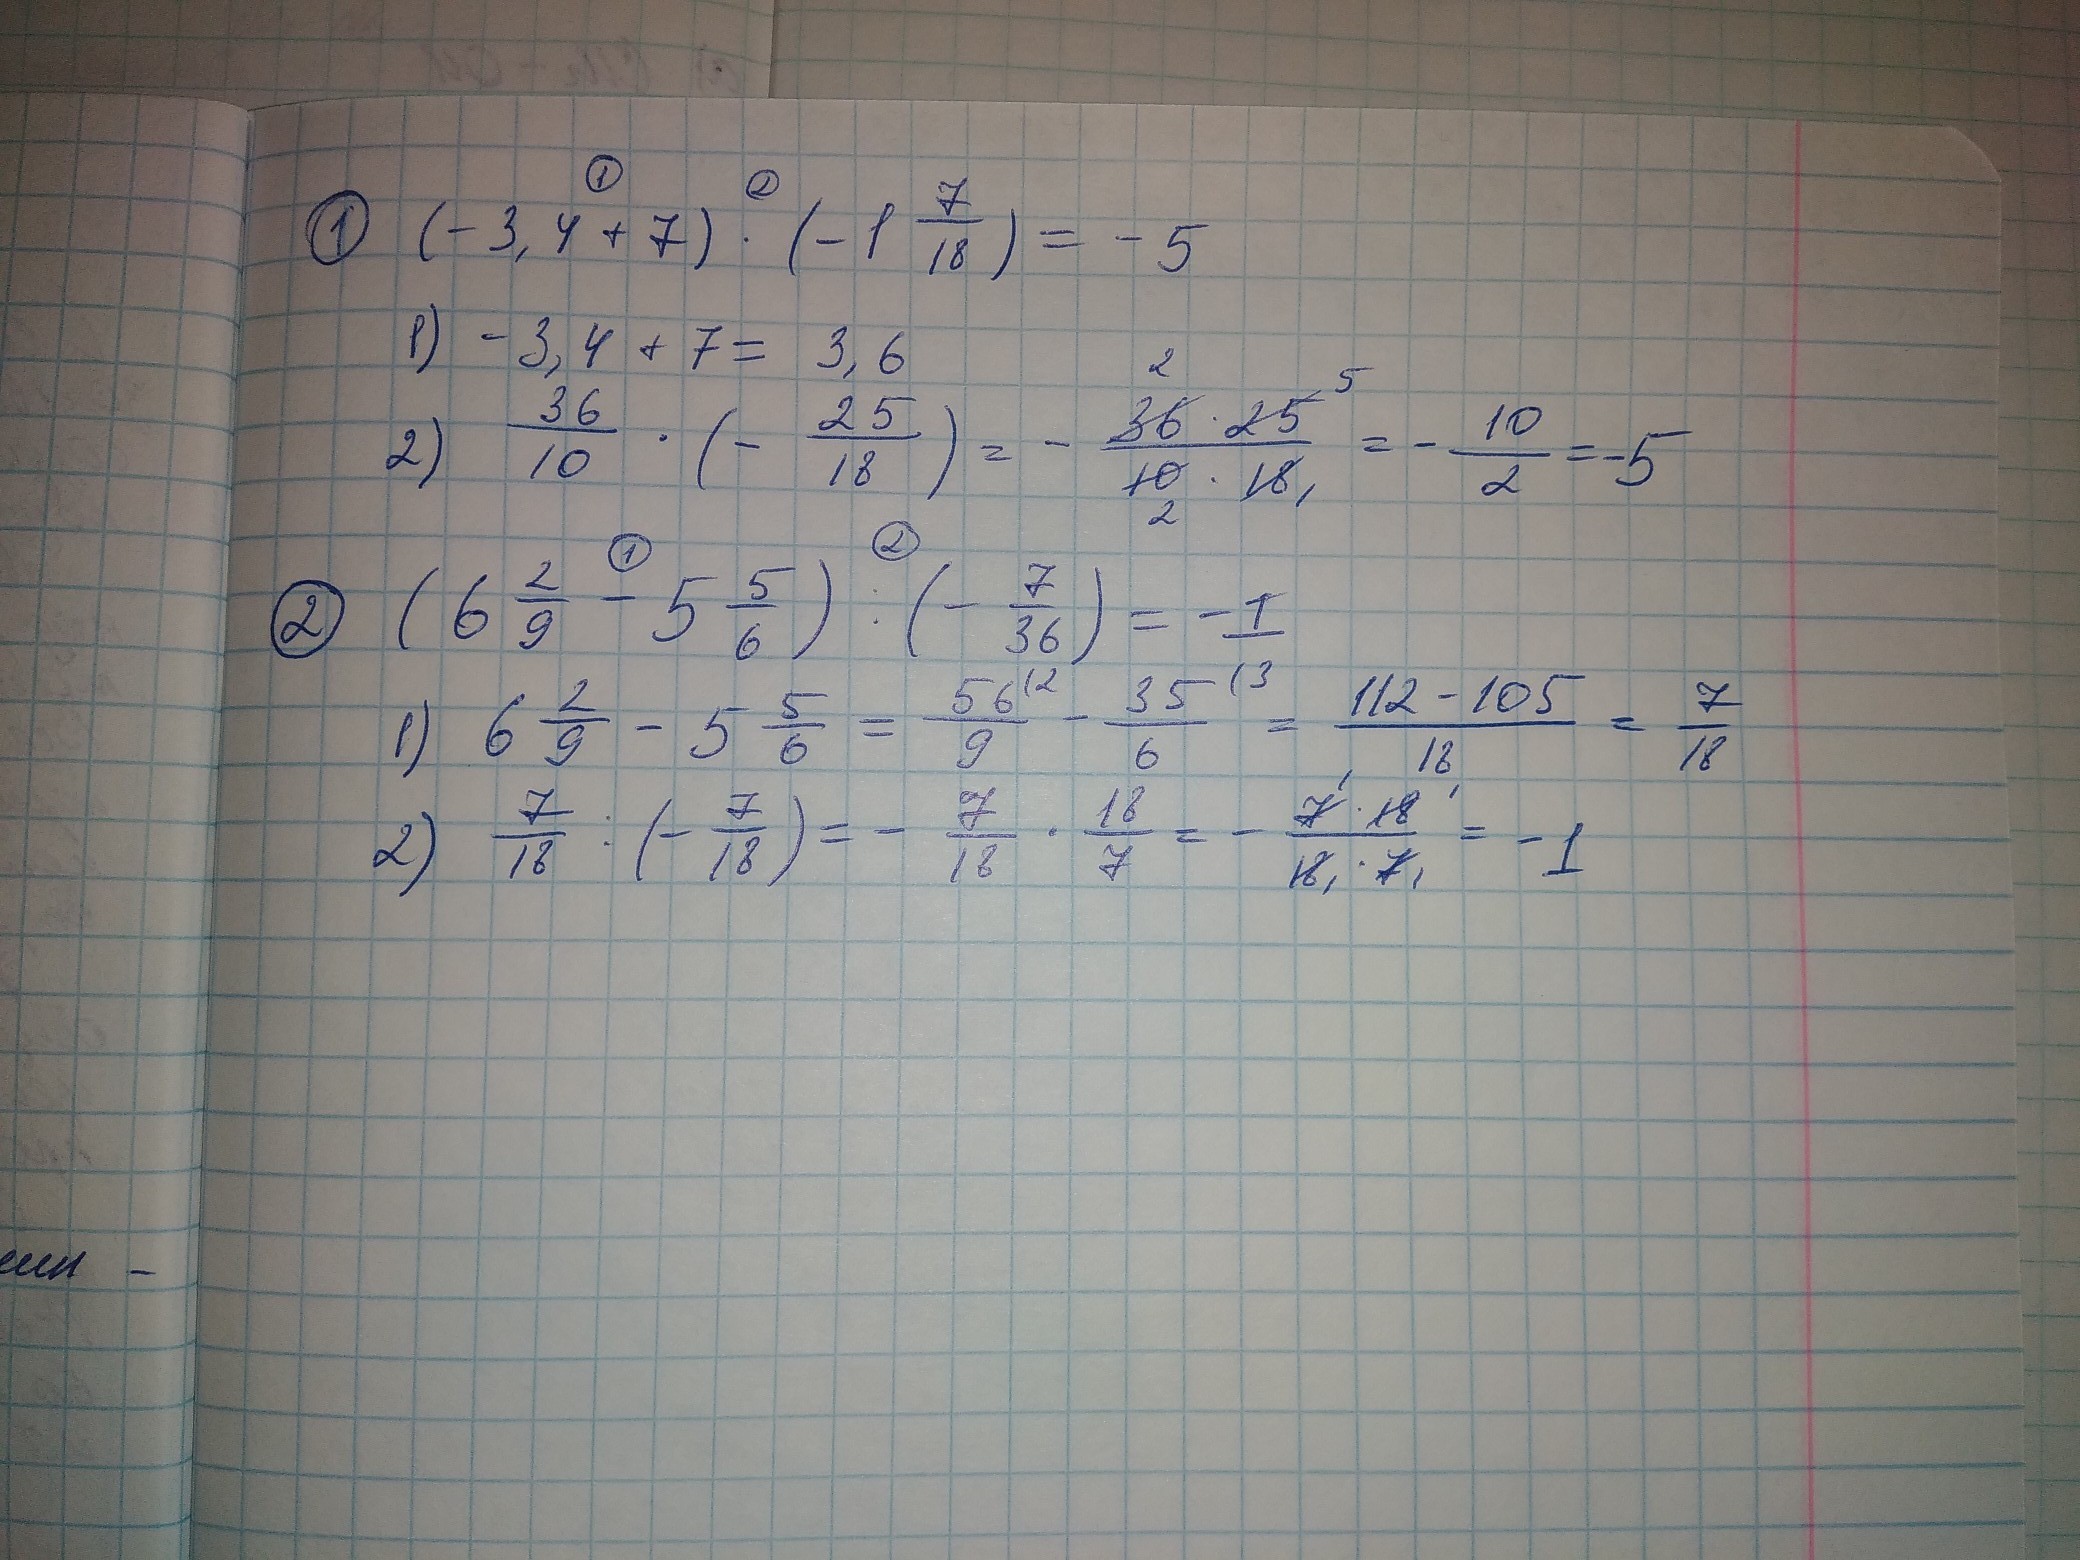 ① (-3,4 +① 7) ·② (-1 7/18) = -5
1) -3,4 + 7 = 3,6
2) 36/10 · (- 25/18) = - 36² · 25⁵ / 10₂ · 18₁ = - 10/2 = -5
② (6 2/9 -① 5 5/6) :② (- 7/36) = -1
1) 6 2/9 - 5 5/6 = 56(2/9 - 35(3/6 = 112-105/18 = 7/18
2) 7/18 : (- 7/18) = - 7/18 · 18/7 = - 7¹ · 18¹ / 18₁ · 7₁ = -1